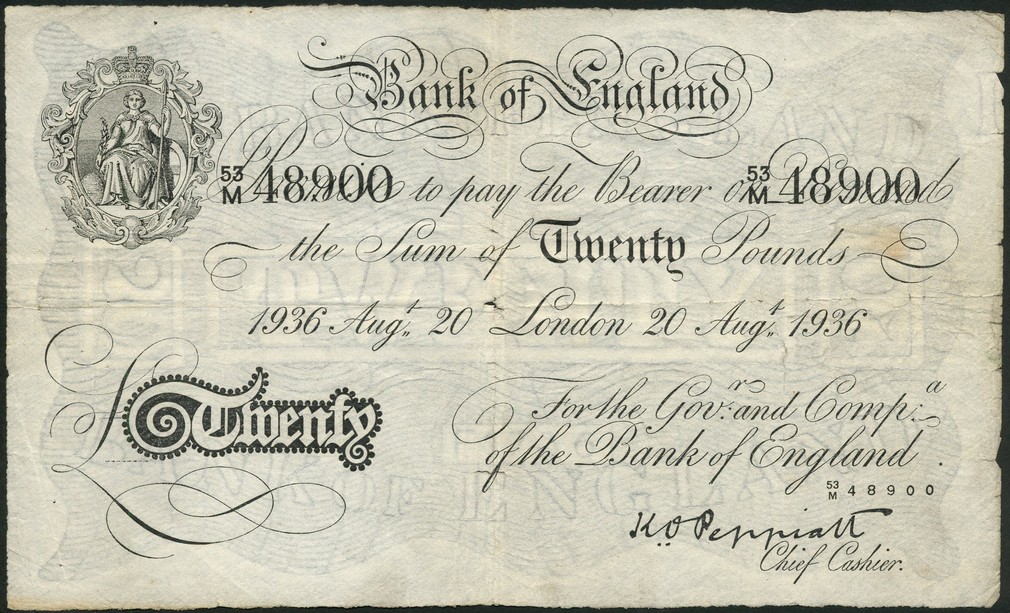 Bank of England
53/M 48900 to pay the Bearer on 53/M 48900
the Sum of Twenty Pounds
1936 Augt. 20 London 20 Augt. 1936
For the Govr: and Compa:
£Twenty
of the Bank of England.
53/M 48900
K.O Peppiatt
Chief Cashier.